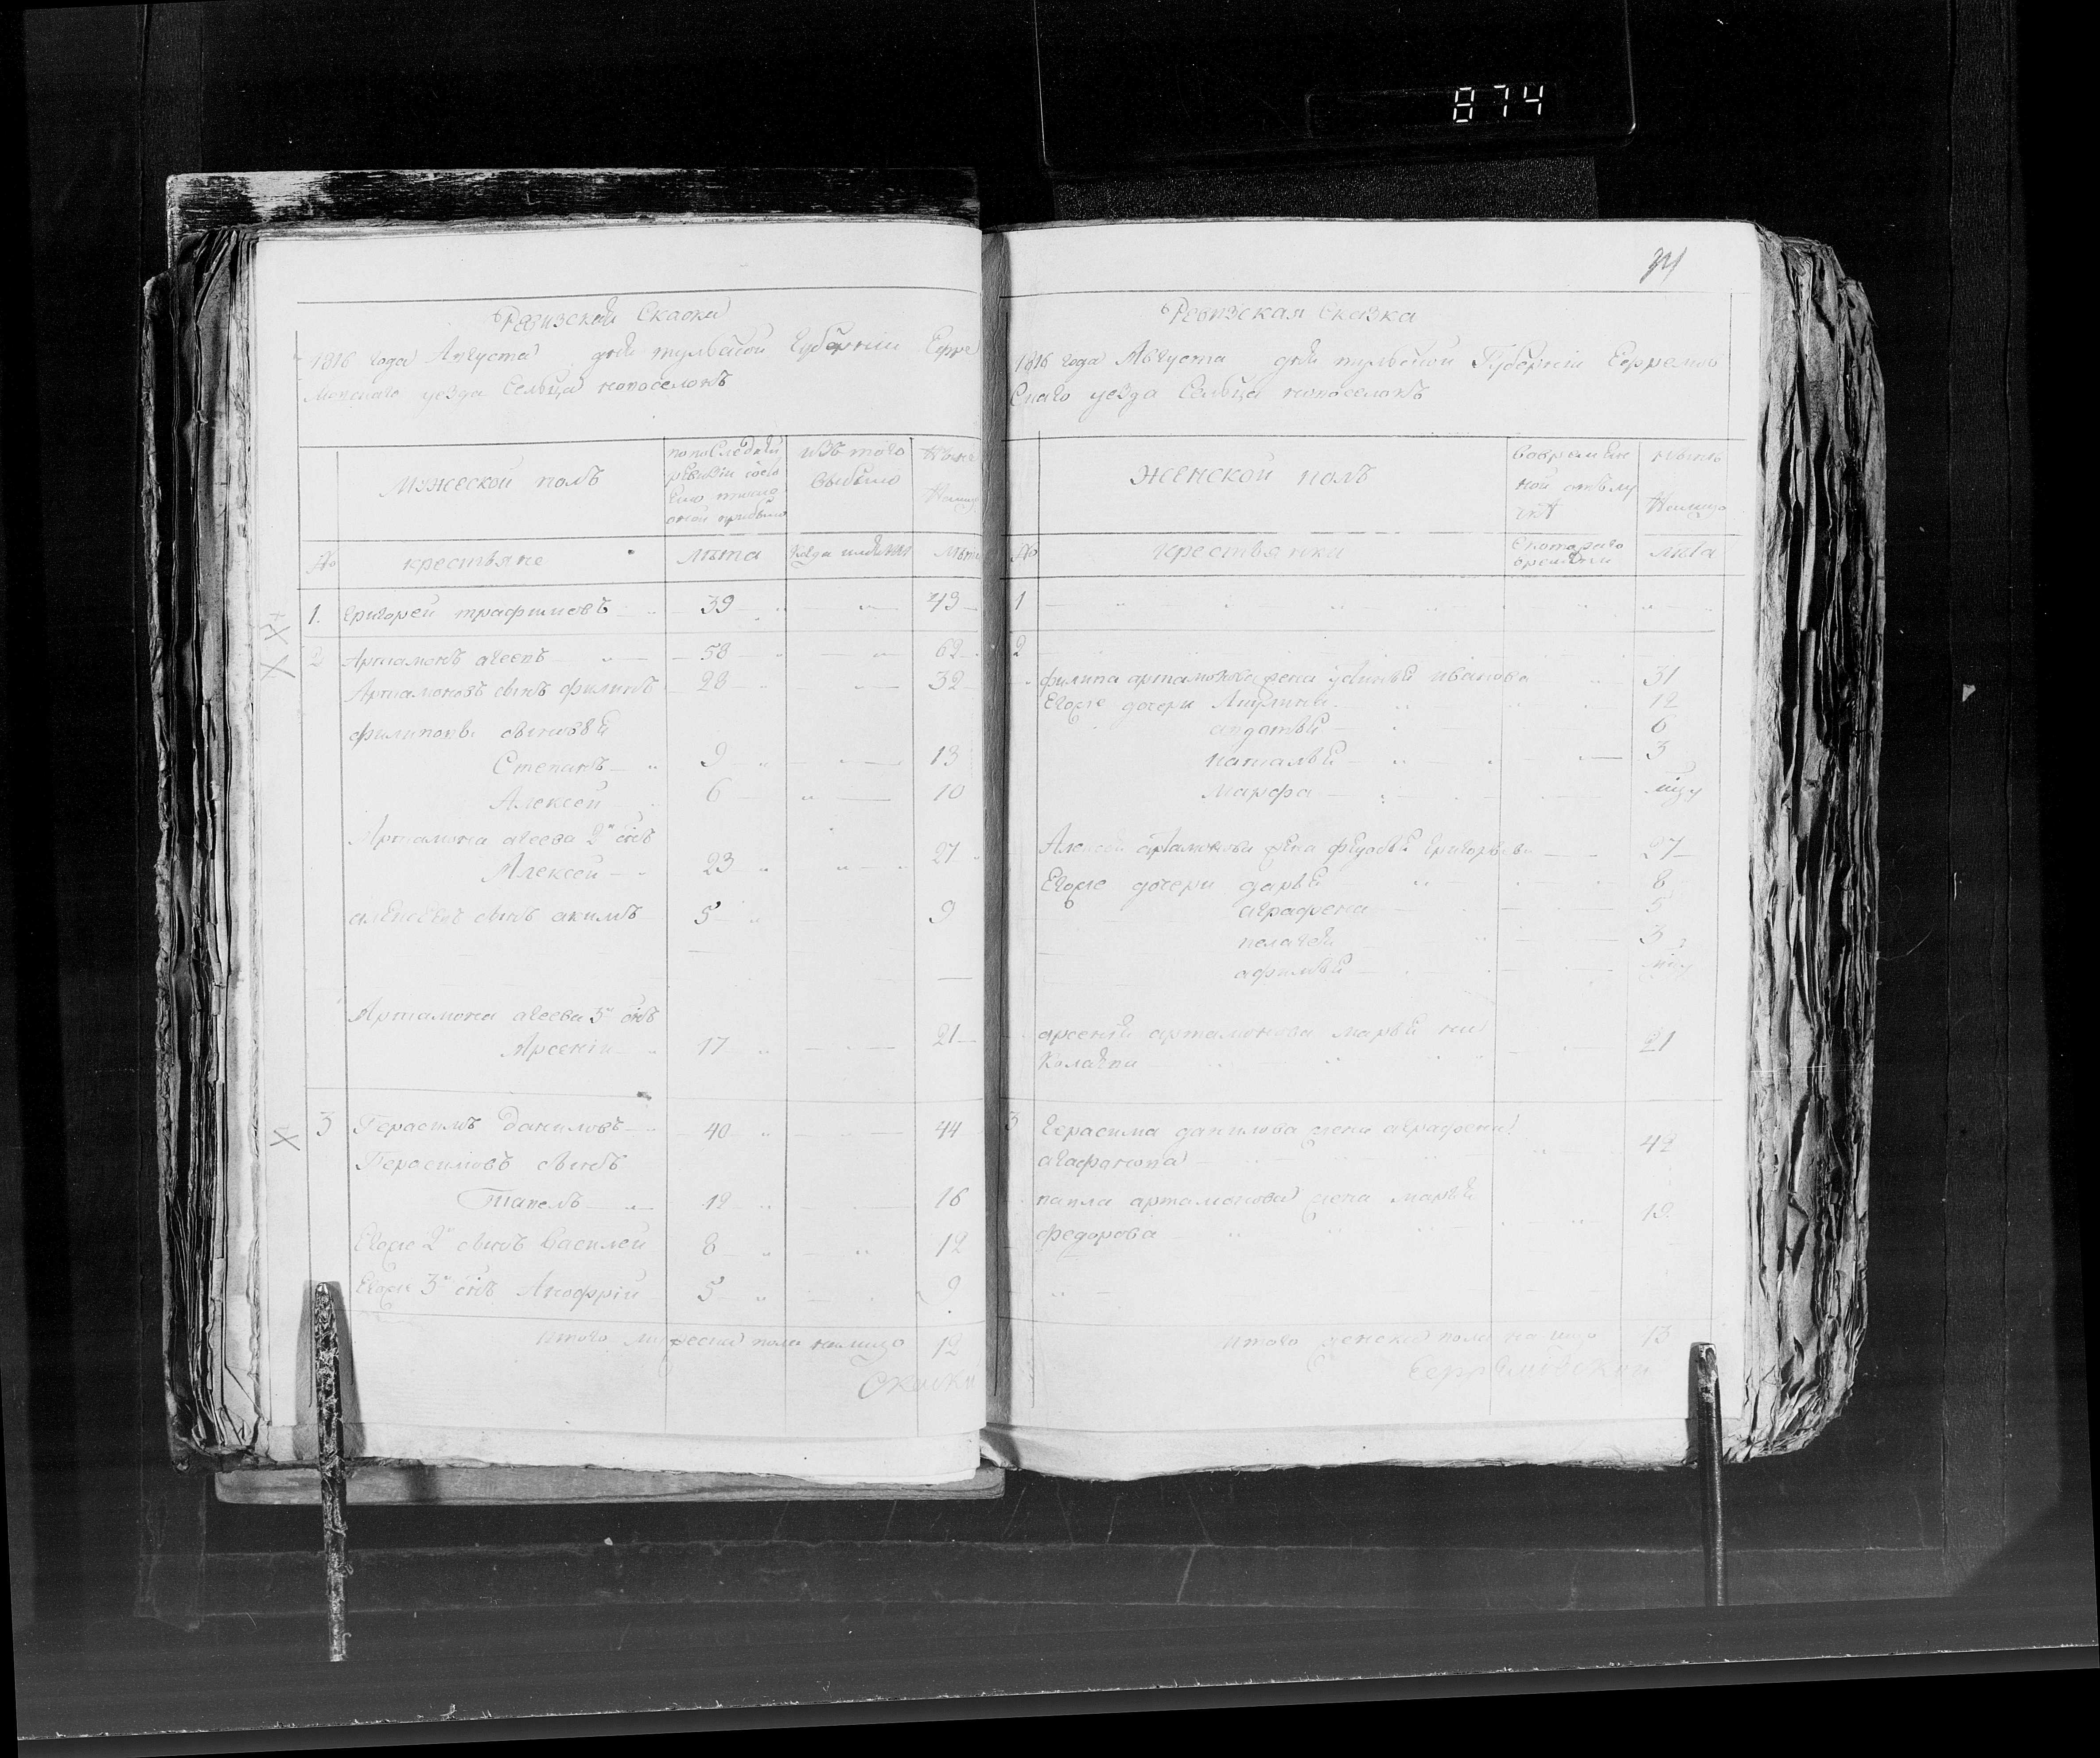 874
Ревизская Сказка
1816 года Августа дня тульской Губернии Ефре
мовскаго уезда Сельца новоселокъ
Мужеской полъ
по последней ревизіи состояло
изъ того выбыло
Ныне на лицо
№ крестьяне лѣта когда имянно лѣта
1. Григорей трафимовъ 39 43
2 Артамонъ агеевъ 58 62
Артамоновъ сынъ филипъ 28 32
филиповы сыновьи
Степанъ 9 13
Алексей 6 10
Артамона агеева 2й сынъ
Алексей 23 27
алексеевъ сынъ акимъ 5 9
Артамона агеева 3й сынъ
Арсеній 17 21
3 Герасимъ Даниловъ 40 44
Герасимовъ сынъ
Павелъ 12 16
Егоже 2й сынъ Василей 8 12
Егоже 3й сынъ Анофрій 5 9
итого мужеска пола налицо 12
Сказки
Ревизская Сказка
1816 года Августа дня тульской Губерніи Ефремов
Скаго уезда Сельца новоселокъ
Женской полъ
во временной отлучкѣ
ныне на лицо
№ крестьянки
С котораго времени
лѣта
1
2
филипа артамонова жена Иванова 31
Егоже дочери 12
авдотья 6
наталья 3
Марфа
Алексея артамонова жена федосья Григорьева 27
Егоже дочери дарья 8
аграфена 5
пелагея 3
афимья
арсенія артамонова марья ни
колаева 21
3 Герасима данилова жена аграфена
агафонова 42
павла артамонова жена марья
федорова 19
итого женска пола на лицо 13
Ефремовской